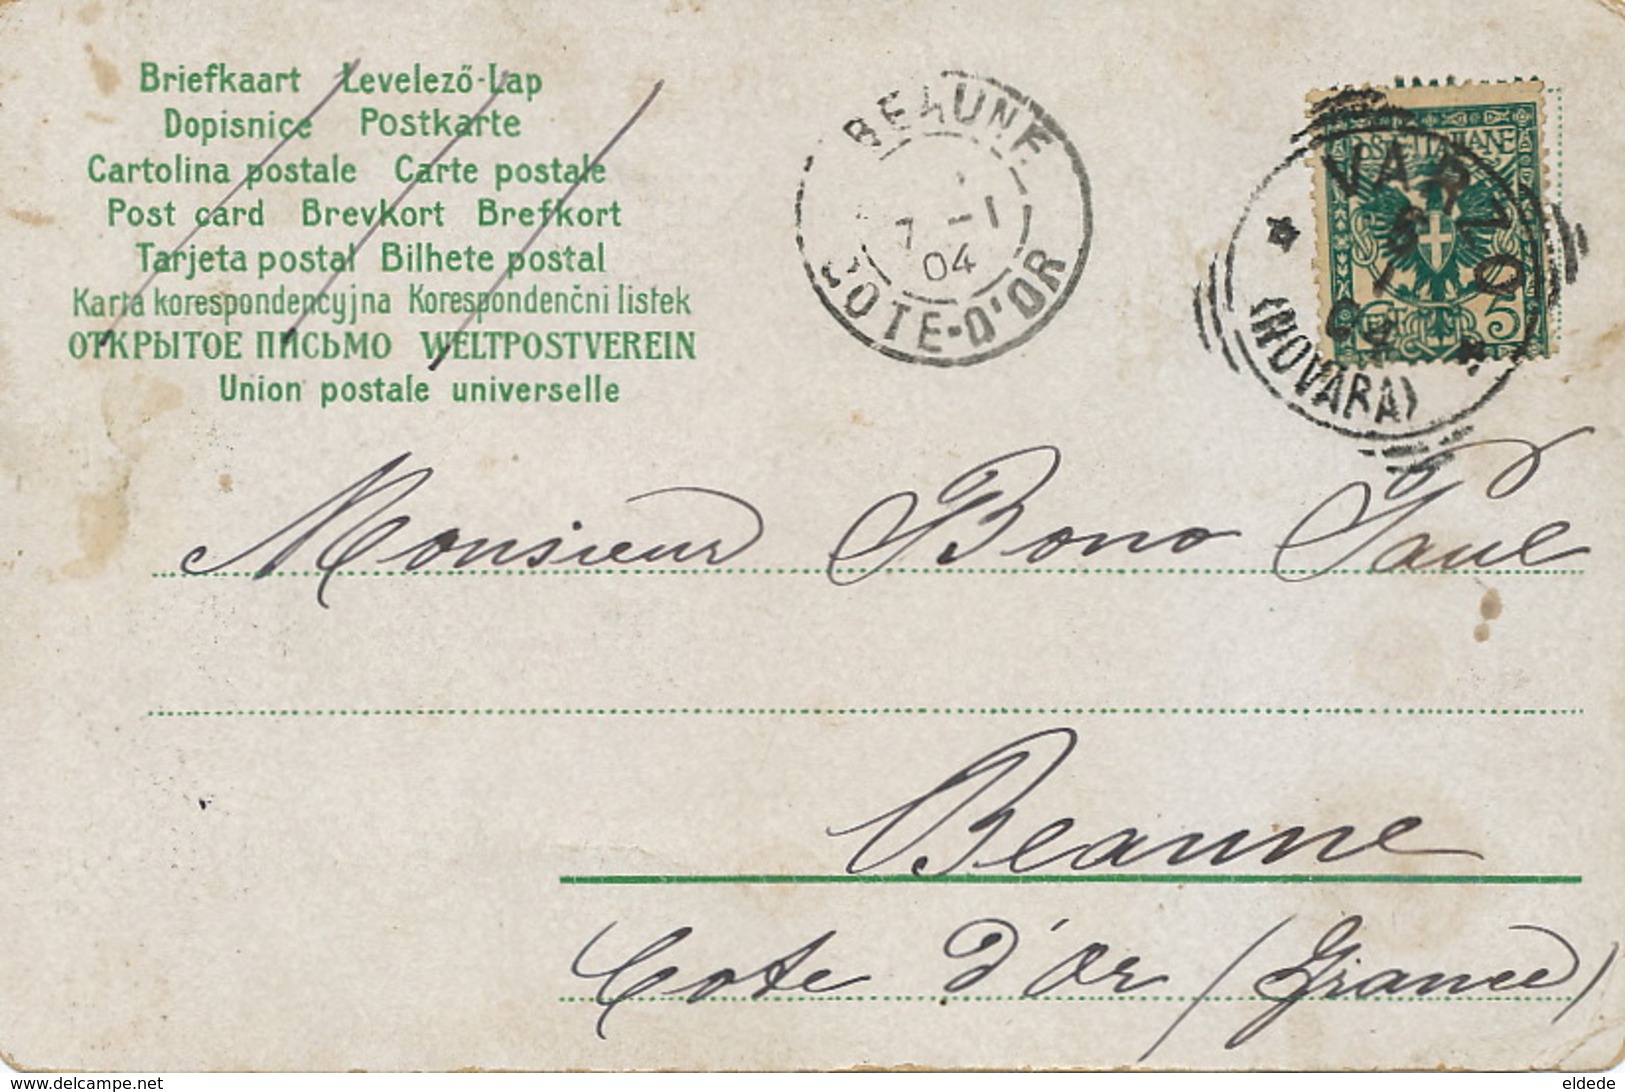 Briefkaart Levelező-Lap
Dopisnice Postkarte
Cartolina postale Carte postale
Post card Brevkort Brefkort
Tarjeta postal Bilhete postal
Karta korespondencyjna Korespondenčni listek
ОТКРЫТОЕ ПИСЬМО WELTPOSTVEREIN
Union postale universelle
BEAUNE
7 -1
04
COTE-D'OR
POSTE ITALIANE
5
VARZO
6
1
04
(NOVARA)
Monsieur Bono Paul
Beaune
Cote d'Or (France)
www.delcampe.net
eldede